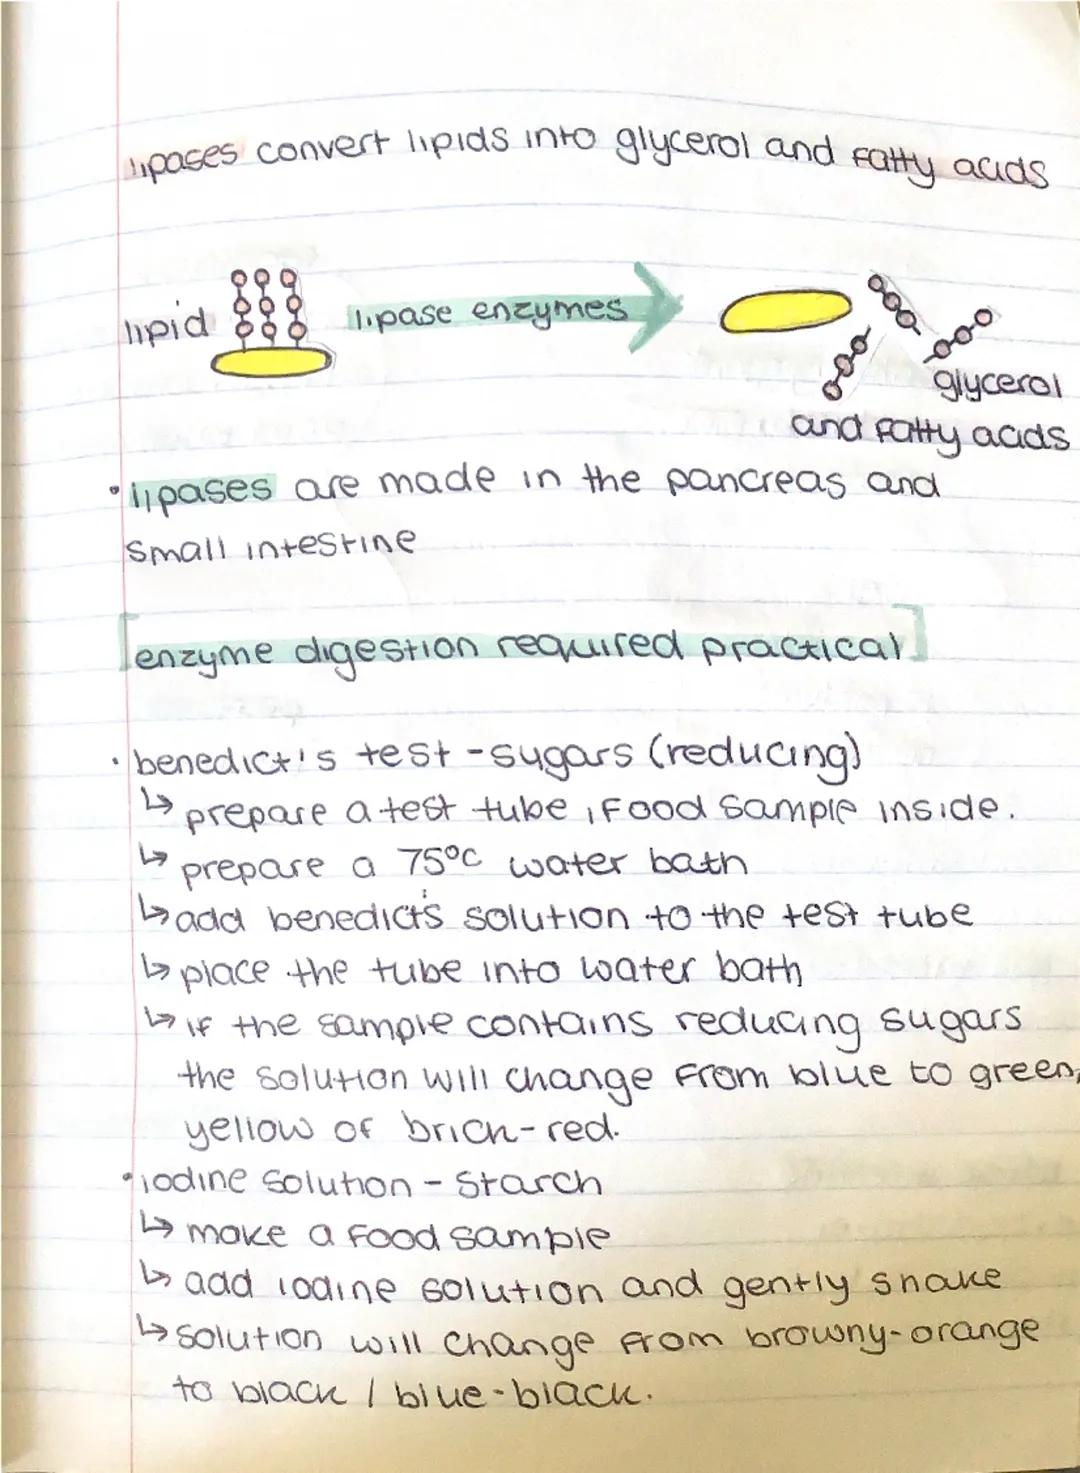 lipases convert lipids into glycerol and fatty acids
lipid
lipase enzymes
glycerol
and fatty acids
• lipases are made in the pancreas and
small intestine
[enzyme digestion required practical]
• benedict's test - sugars (reducing)
↳ prepare a test tube, food sample inside.
↳ prepare a 75°C water bath
↳ add benedict's solution to the test tube
↳ place the tube into water bath
↳ if the sample contains reducing sugars
the solution will change from blue to green,
yellow or brick-red.
• iodine solution - starch
↳ make a food sample
↳ add iodine solution and gently shake
↳ solution will change from browny-orange
to black / blue-black.